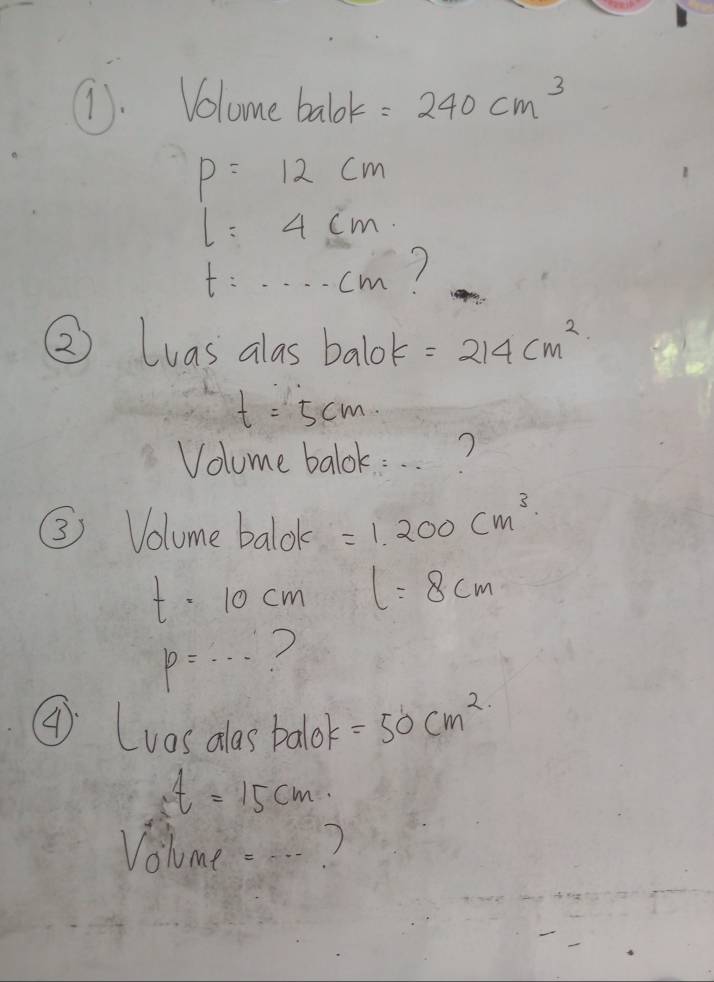 ①. Volume balok = 240 cm³
p = 12 cm
l = 4 cm.
t = .... cm ?
② Luas alas balok = 214 cm².
t = 5 cm.
Volume balok = ... ?
③ Volume balok = 1.200 cm³.
t = 10 cm l = 8 cm
p = .... ?
④. Luas alas balok = 50 cm².
t = 15 cm.
Volume = .... ?